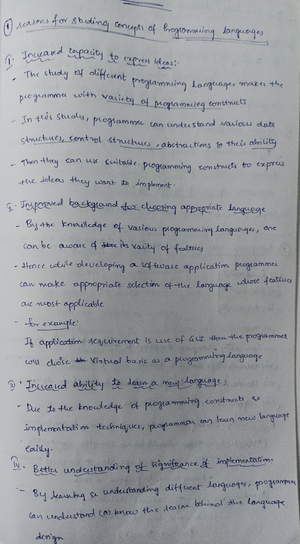 ① reasons for studing concepts of Programming languages
I. Increased capacity to express ideas:-
- The study of different programming languages makes the
programmer with variety of programming constructs
- In this study, programmer can understand various data
structures, control structures, abstractions & their ability
- Then they can use suitable programming constructs to express
the ideas they want to implement.
II. Improved background for choosing appropriate language
- By the knowledge of various programming languages, one
can be aware of its varity of features
- Hence while developing a software application programmer
can make appropriate selection of the language whose features
are most applicable
- for example:
If application requirement is use of GUI then the programmer
will choice Virtual basic as a programming language
III. Increased ability to learn a new language:
- Due to the knowledge of programming constructs &
implementation techniques, programmer can learn new language
easily.
IV. Better understanding of significance of implementation.
- By learning & understanding different languages, programmer
can understand (or) know the reason behind the language
design